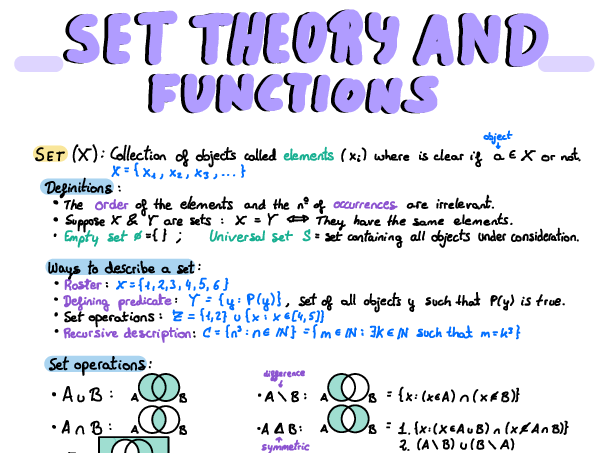 SET THEORY AND
FUNCTIONS
object
SET (X): Collection of objects called elements (xᵢ) where is clear if a ∈ X or not.
X = {x₁, x₂, x₃, ...}
Definitions:
• The order of the elements and the nº of occurrences are irrelevant.
• Suppose X & Y are sets: X = Y ⟺ They have the same elements.
• Empty set ∅ = { } ; Universal set S = set containing all objects under consideration.
Ways to describe a set:
• Roster: X = {1, 2, 3, 4, 5, 6}
• Defining predicate: Y = {y: P(y)}, set of all objects y such that P(y) is true.
• Set operations: Z = {1, 2} ∪ {x: x ∈ [4, 5]}
• Recursive description: C = {n³ : n ∈ ℕ} = {m ∈ ℕ : ∃K ∈ ℕ such that m = k³}
Set operations:
difference
• A ∪ B: A B • A \ B: A B = {x: (x ∈ A) ∩ (x ∉ B)}
• A ∩ B: A B • A Δ B: A B = 1. {x: (x ∈ A ∪ B) ∩ (x ∉ A ∩ B)}
symmetric 2. (A \ B) ∪ (B \ A)